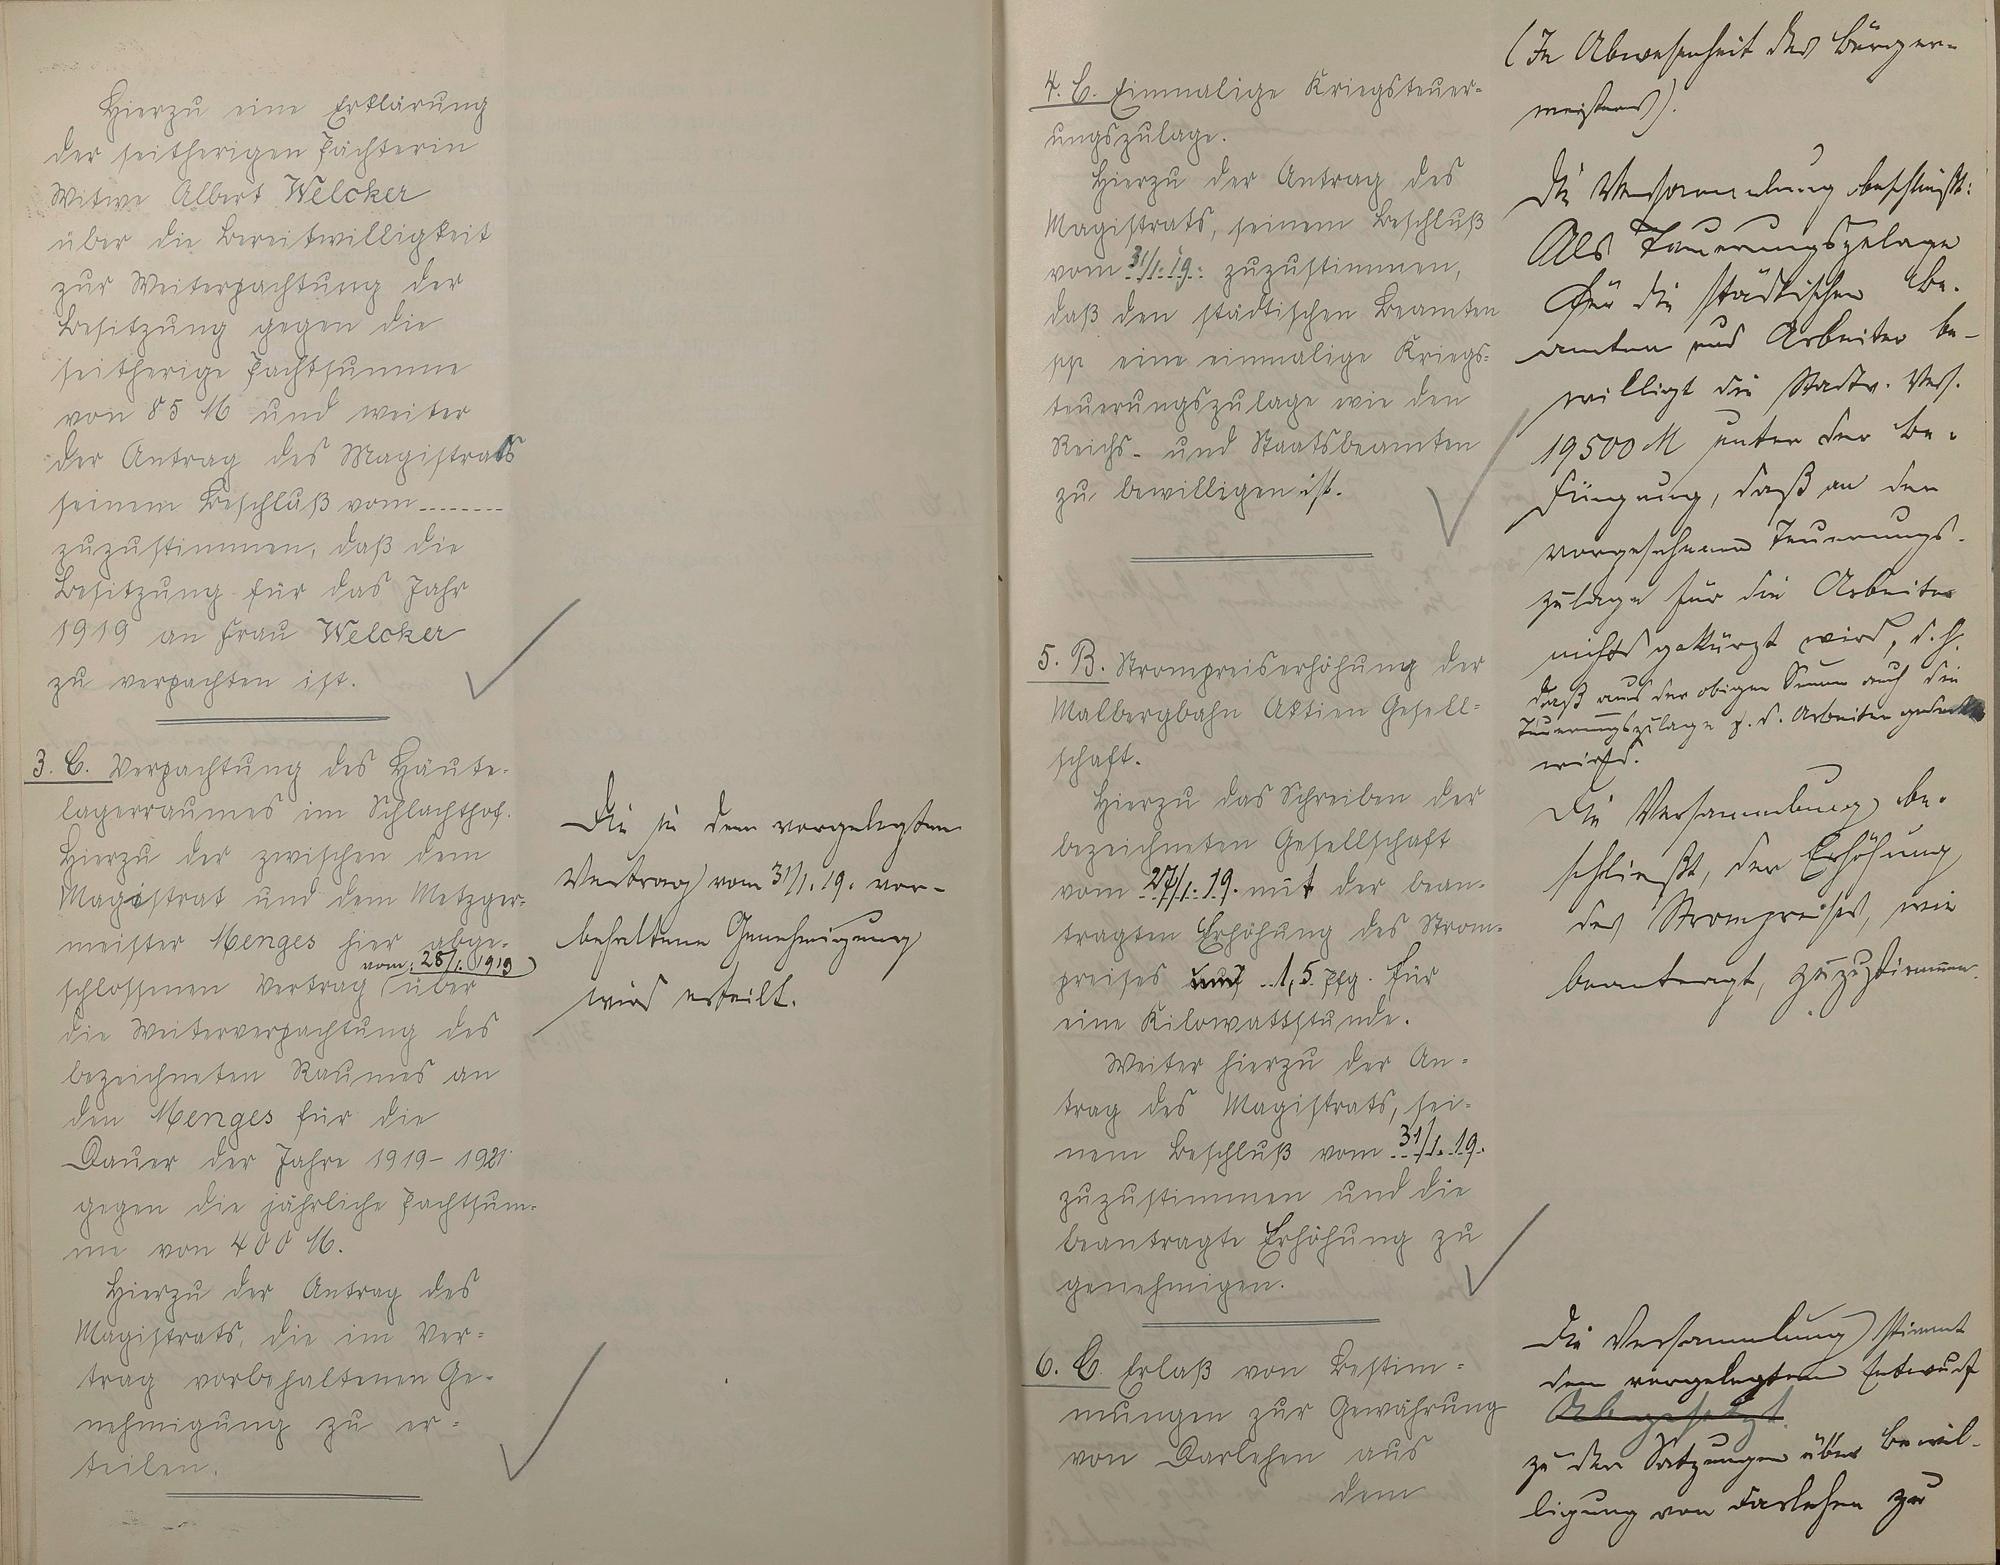 Hierzu eine Erklärung
der seitherigen Pächterin
Witwe Albert Welcker
über die Bereitwilligkeit
zur Weiterpachtung der
Besitzung gegen die
seitherige Pachtsumme
von 85 M und weiter
der Antrag des Magistrats
seinem Beschluß vom........
zuzustimmen, daß die
Besitzung für das Jahr
1919 an Frau Welcker
zu verpachten ist.
3. C. Verpachtung des Häute-
lagerraumes im Schlachthof.
Hierzu der zwischen dem
Magistrat und dem Metzger-
meister Menges hier abge-
vom 28/1. 1919
schlossenen Vertrag über
die Weiterverpachtung des
bezeichneten Raumes an
den Menges für die
Dauer der Jahre 1919-1921
gegen die jährliche Pachtsum-
me von 400 M.
Hierzu der Antrag des
Magistrats, die im Ver-
trag vorbehaltenen Ge-
nehmigung zu er-
teilen.
Die in dem vorgelegten
Vertrag vom 31/1. 19. vor-
behaltene Genehmigung
wird erteilt.
4. C. Einmalige Kriegsteuer-
ungszulage.
Hierzu der Antrag des
Magistrats, seinem Beschluß
vom 31/1. 19. zuzustimmen,
daß den städtischen Beamten
pp eine einmalige Kriegs-
teuerungszulage wie den
Reichs- und Staatsbeamten
zu bewilligen ist.
5. B. Strompreiserhöhung der
Malbergbahn Aktien Gesell-
schaft.
Hierzu das Schreiben der
bezeichneten Gesellschaft
vom 27/1. 19. mit der bean-
tragten Erhöhung des Strom-
preises um 1,5 Pfg. für
eine Kilowattstunde.
Weiter hierzu der An-
trag des Magistrats, sei-
nem Beschluß vom 31/1. 19.
zuzustimmen und die
beantragte Erhöhung zu
genehmigen.
6. C. Erlaß von Bestim-
mungen zur Gewährung
von Darlehen aus
dem
(In Abwesenheit des Bürger-
meisters).
Die Versammlung beschließt:
Als Teuerungszulage
für die städtischen Be-
amten und Arbeiter be-
willigt die Stadtv. Vers.
19500 M unter der Be-
dingung, daß an der
vorgesehenen Teuerungs-
zulage für die Arbeiter
nichts gekürzt wird, d.h.
daß aus der obigen Summe auch die
Teuerungszulage f. d. Arbeiter gedeckt
wird.
Die Versammlung be-
schließt, der Erhöhung
des Strompreises, wie
beantragt, zuzustimmen.
Die Versammlung stimmt
dem vorgelegten Entwurf
Abgesetzt.
zu den Satzungen über Bewil-
ligung von Darlehen zu